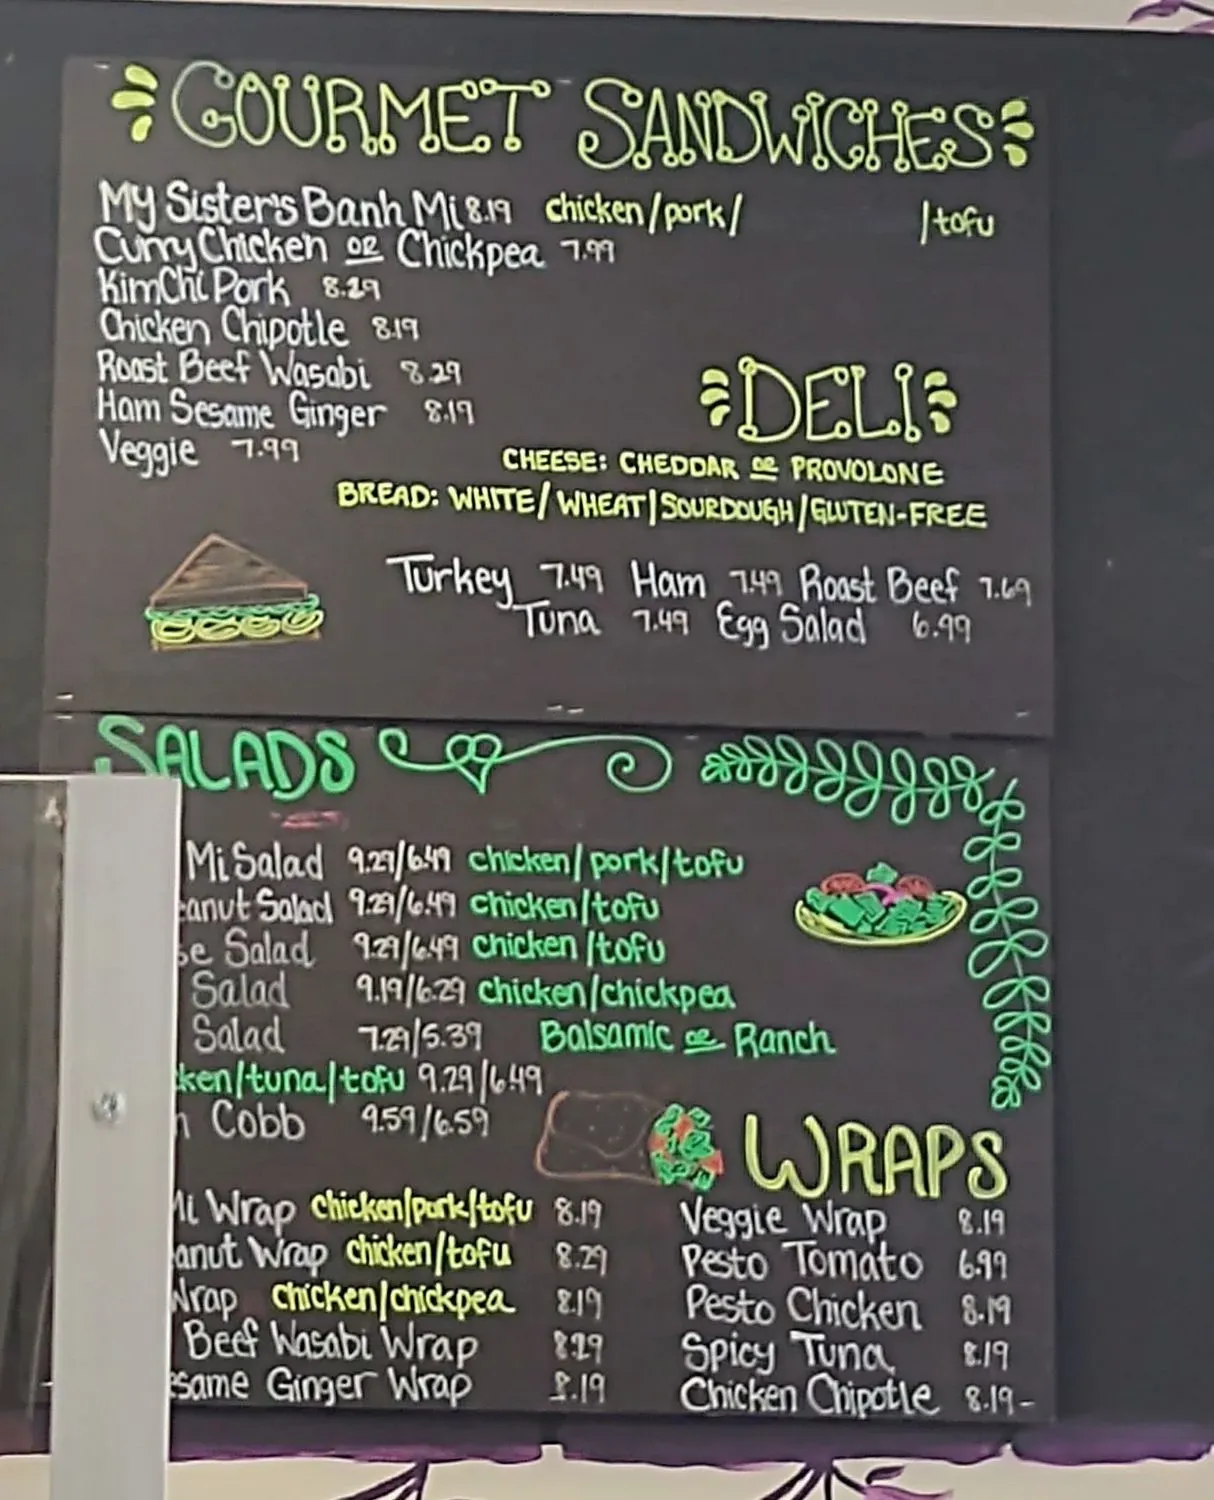 GOURMET SANDWICHES
My Sister's Banh Mi 8.19 chicken/pork/ /tofu
Curry Chicken or Chickpea 7.99
KimChi Pork 8.29
Chicken Chipotle 8.19
Roast Beef Wasabi 8.29
Ham Sesame Ginger 8.19
Veggie 7.99
DELI
CHEESE: CHEDDAR or PROVOLONE
BREAD: WHITE/WHEAT/SOURDOUGH/GLUTEN-FREE
Turkey 7.49 Ham 7.49 Roast Beef 7.69
Tuna 7.49 Egg Salad 6.99
SALADS
Mi Salad 9.29/6.49 chicken/pork/tofu
anut Salad 9.29/6.49 chicken/tofu
se Salad 9.29/6.49 chicken/tofu
Salad 9.19/6.29 chicken/chickpea
Salad 7.29/5.39 Balsamic or Ranch
ken/tuna/tofu 9.29/6.49
Cobb 9.59/6.59
WRAPS
Mi Wrap chicken/pork/tofu 8.19
anut Wrap chicken/tofu 8.29
Wrap chicken/chickpea 8.19
Beef Wasabi Wrap 8.29
esame Ginger Wrap 8.19
Veggie Wrap 8.19
Pesto Tomato 6.99
Pesto Chicken 8.19
Spicy Tuna 8.19
Chicken Chipotle 8.19-